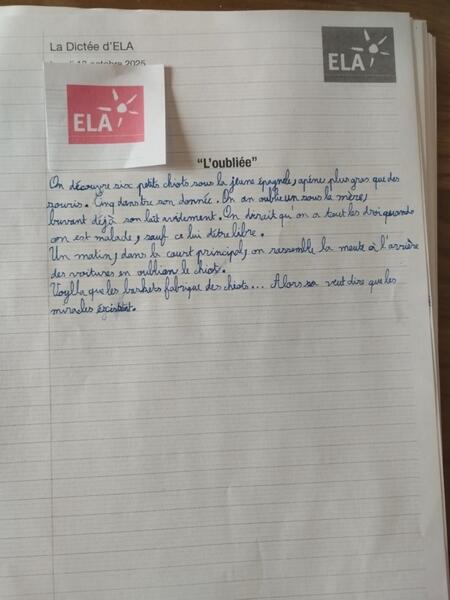 La Dictée d'ELA
ELA
ELA
"L'oubliée"
On découvre six petits chiots sous la jeune épagnele, apène plus gros que des
souris. Cinq dans tre son donnée. On an oublie un sous la mère,
buvant déjà son lait avidement. On dirait qu'on a tout les droi quand
on est malade, sauf ce lui d'être libre.
Un matin, dans la court principal, on rassemble la meute à l'arrière
des voitures en oublian le chiot.
Voylla que les baskets fabrique des chiots... Alors sa veut dire que les
miracles existent.